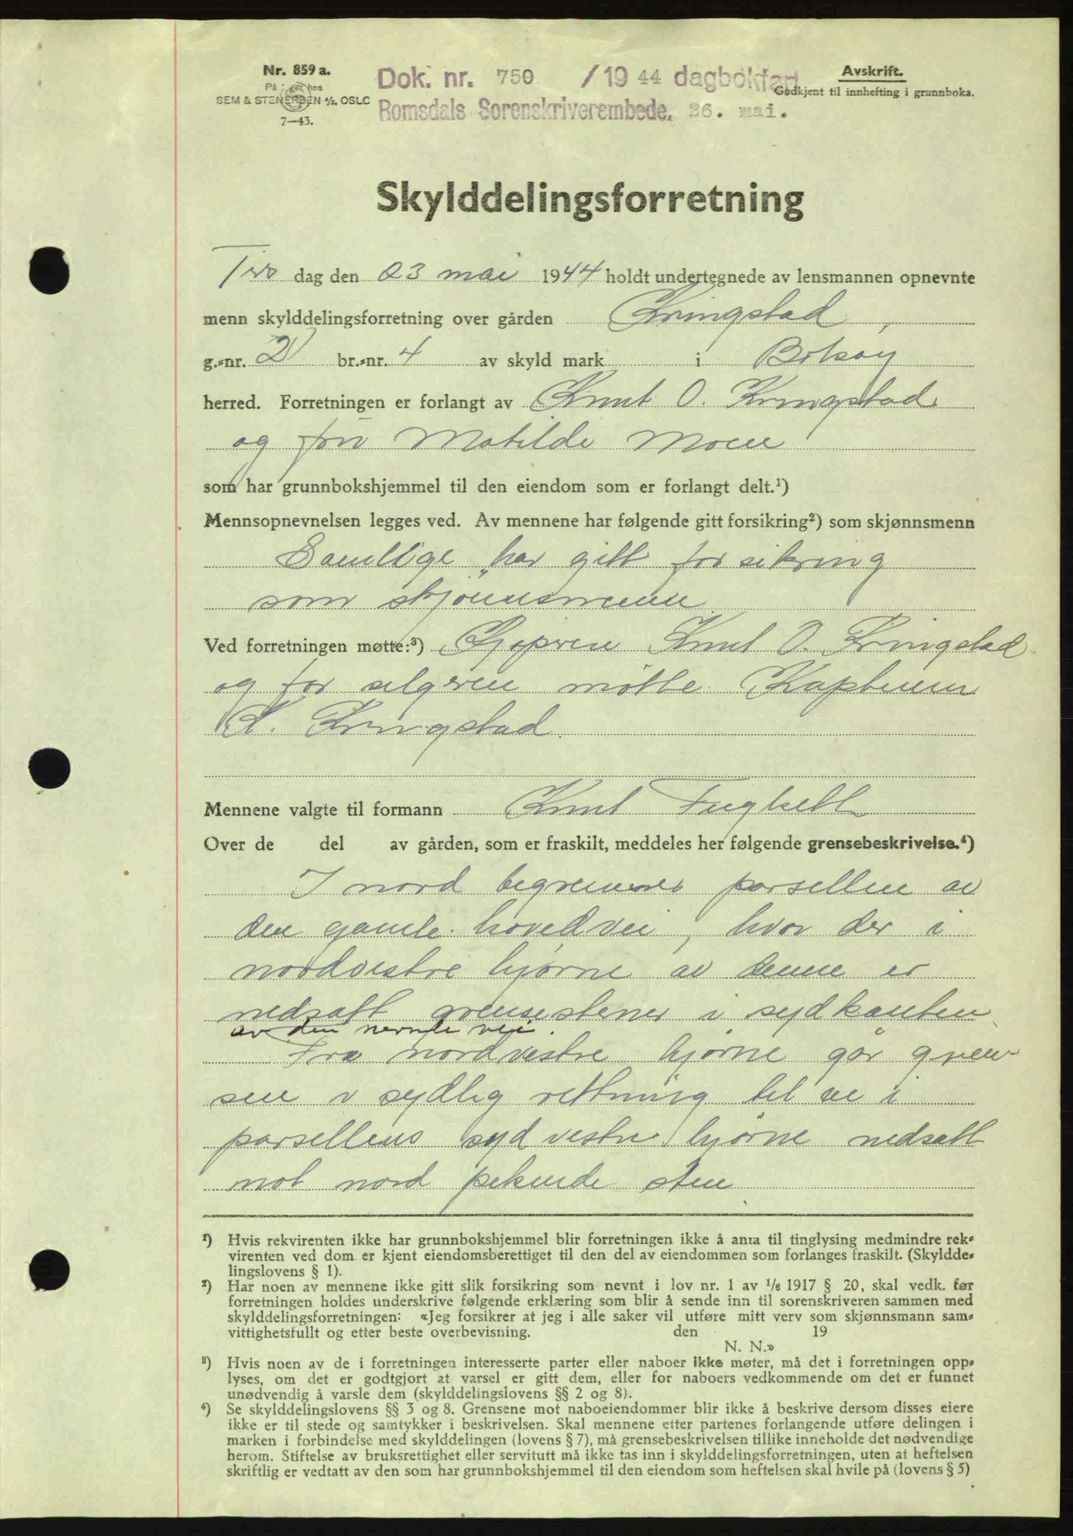 Nr. 859 a.
På lager hos
SEM & STENERSEN A/S, OSLO
7—43.
Dok. nr. 750 /1944 dagbokført
Romsdals Sorenskriverembede, 26. mai.
Avskrift.
Godkjent til innhefting i grunnboka.
Skylddelingsforretning
Tirs dag den 23 mai 1944 holdt undertegnede av lensmannen opnevnte
menn skylddelingsforretning over gården Kringstad,
g.-nr. 21 br.-nr. 4 av skyld mark i Bolsøy
herred. Forretningen er forlangt av Knut O. Kringstad
og fru Matilde Moen
som har grunnbokshjemmel til den eiendom som er forlangt delt.¹)
Mennsopnevnelsen legges ved. Av mennene har følgende gitt forsikring²) som skjønnsmenn
Samtlige har gitt forsikring
som skjønnsmenn
Ved forretningen møtte:³) Kjøperen Knut O. Kringstad
og for selgeren møtte Kapteinen
K. Kringstad.
Mennene valgte til formann Knut Fuglset
Over de del av gården, som er fraskilt, meddeles her følgende grensebeskrivelse.⁴)
I nord begrenses parsellen av
den gamle hovedvei, hvor der i
nordvestre hjørne av denne er
nedsatt grensestener i sydkanten
av den nevnte vei.
Fra nordvestre hjørne går gren-
sen i sydlig rettning til en i
parsellens sydvestre hjørne nedsatt
mot nord pekende sten
¹) Hvis rekvirenten ikke har grunnbokshjemmel blir forretningen ikke å anta til tinglysing medmindre rek-
virenten ved dom er kjent eiendomsberettiget til den del av eiendommen som forlanges fraskilt. (Skyldde-
lingslovens § 1).
²) Har noen av mennene ikke gitt slik forsikring som nevnt i lov nr. 1 av ¹/₆ 1917 § 20, skal vedk. før
forretningen holdes underskrive følgende erklæring som blir å sende inn til sorenskriveren sammen med
skylddelingsforretningen: «Jeg forsikrer at jeg i alle saker vil utføre mitt verv som skjønnsmann sam-
vittighetsfullt og etter beste overbevisning. den 19
N. N.»
³) Hvis noen av de i forretningen interesserte parter eller naboer ikke møter, må det i forretningen opp-
lyses, om det er godtgjort at varsel er gitt dem, eller for naboers vedkommende om det er funnet
unødvendig å varsle dem (skylddelingslovens §§ 2 og 8).
⁴) Se skylddelingslovens §§ 3 og 8. Grensene mot naboeiendommer blir ikke å beskrive dersom disses eiere
ikke er til stede og samtykker i beskrivelsen. Skal mennene etter partenes forlangende utføre delingen i
marken i forbindelse med skylddelingen (lovens § 7), må grensebeskrivelsen tillike inneholde det nødvendige
herom. Stiftelse av bruksrettighet eller servitutt må ikke tas inn i skylddelingsforretningen, uten at heftelsen
skriftlig er vedtatt av den som har grunnbokshjemmel til den eiendom som heftelsen skal hvile på (lovens § 5)